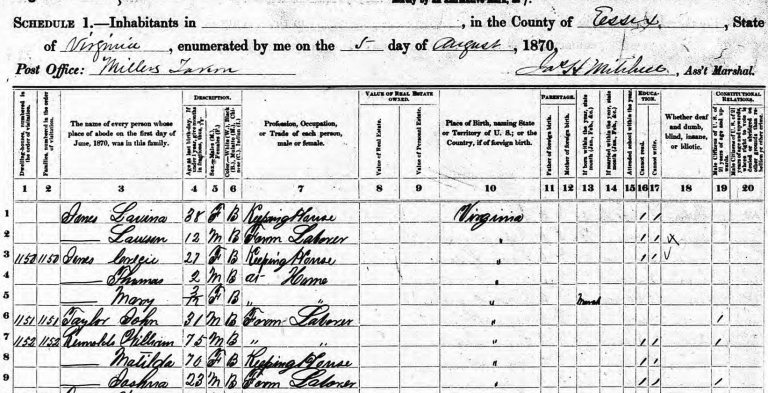 SCHEDULE 1.—Inhabitants in , in the County of Essex , State
of Virginia , enumerated by me on the 5 day of August , 1870.
Post Office: Millers Tavern Jas H , Ass't Marshal.
Dwelling-houses, numbered in the order of visitation.
Families, numbered in the order of visitation.
The name of every person whose place of abode on the first day of June, 1870, was in this family.
DESCRIPTION.
Age at last birth-day.
Sex.—Males (M.), Females (F.)
Color.—White (W.), Black (B.), Mulatto (M.),
Profession, Occupation, or Trade of each person, male or female.
VALUE OF REAL ESTATE OWNED.
Value of Real Estate.
Value of Personal Estate.
Place of Birth, naming State or Territory of U. S.; or the Country, if of foreign birth.
PARENTAGE.
Father of foreign birth.
Mother of foreign birth.
If born within the year, state month (Jan., Feb., &c.)
If married within the year, state month (Jan., Feb., &c.)
EDUCATION.
Attended school within the year.
Cannot read.
Cannot write.
Whether deaf and dumb, blind, insane, or idiotic.
CONSTITUTIONAL RELATIONS.
1 2 3 4 5 6 7 8 9 10 11 12 13 14 15 16 17 18 19 20
1 Jones Lavina 38 F B Keeping House Virginia / /
2 —— Lawson 12 M B Farm Laborer " / /
3 1150 1150 Jones 27 F B Keeping House " / /
4 —— Thomas 2 M B at Home "
5 —— Mary F B " " " March
6 1151 1151 Taylor John 31 M B Farm Laborer " /
7 1152 1152 75 M B " " " / / /
8 —— Matilda 70 F B Keeping House " / /
9 —— Joshua 23 M B Farm Laborer " / / /